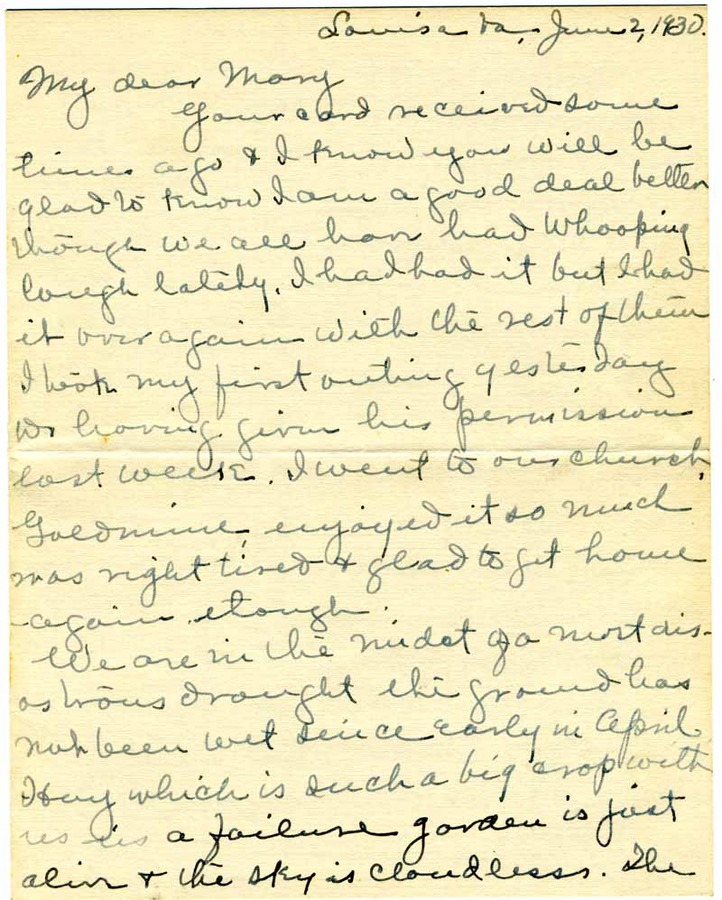 Louisa Va, June 2, 1930.
My dear Mary
Your card received some
time ago & I know you will be
glad to know I am a good deal better
though we all have had Whooping
Cough lately. I had had it but I had
it over again with the rest of them
I took my first outing yesterday
Dr having given his permission
last week. I went to our church,
Goldmine, enjoyed it so much
was right tired & glad to get home
again, though.
We are in the midst of a most dis-
astrous drought the ground has
not been wet since early in April.
Hay which is such a big crop with
us is a failure garden is just
alive & the sky is cloudless. The